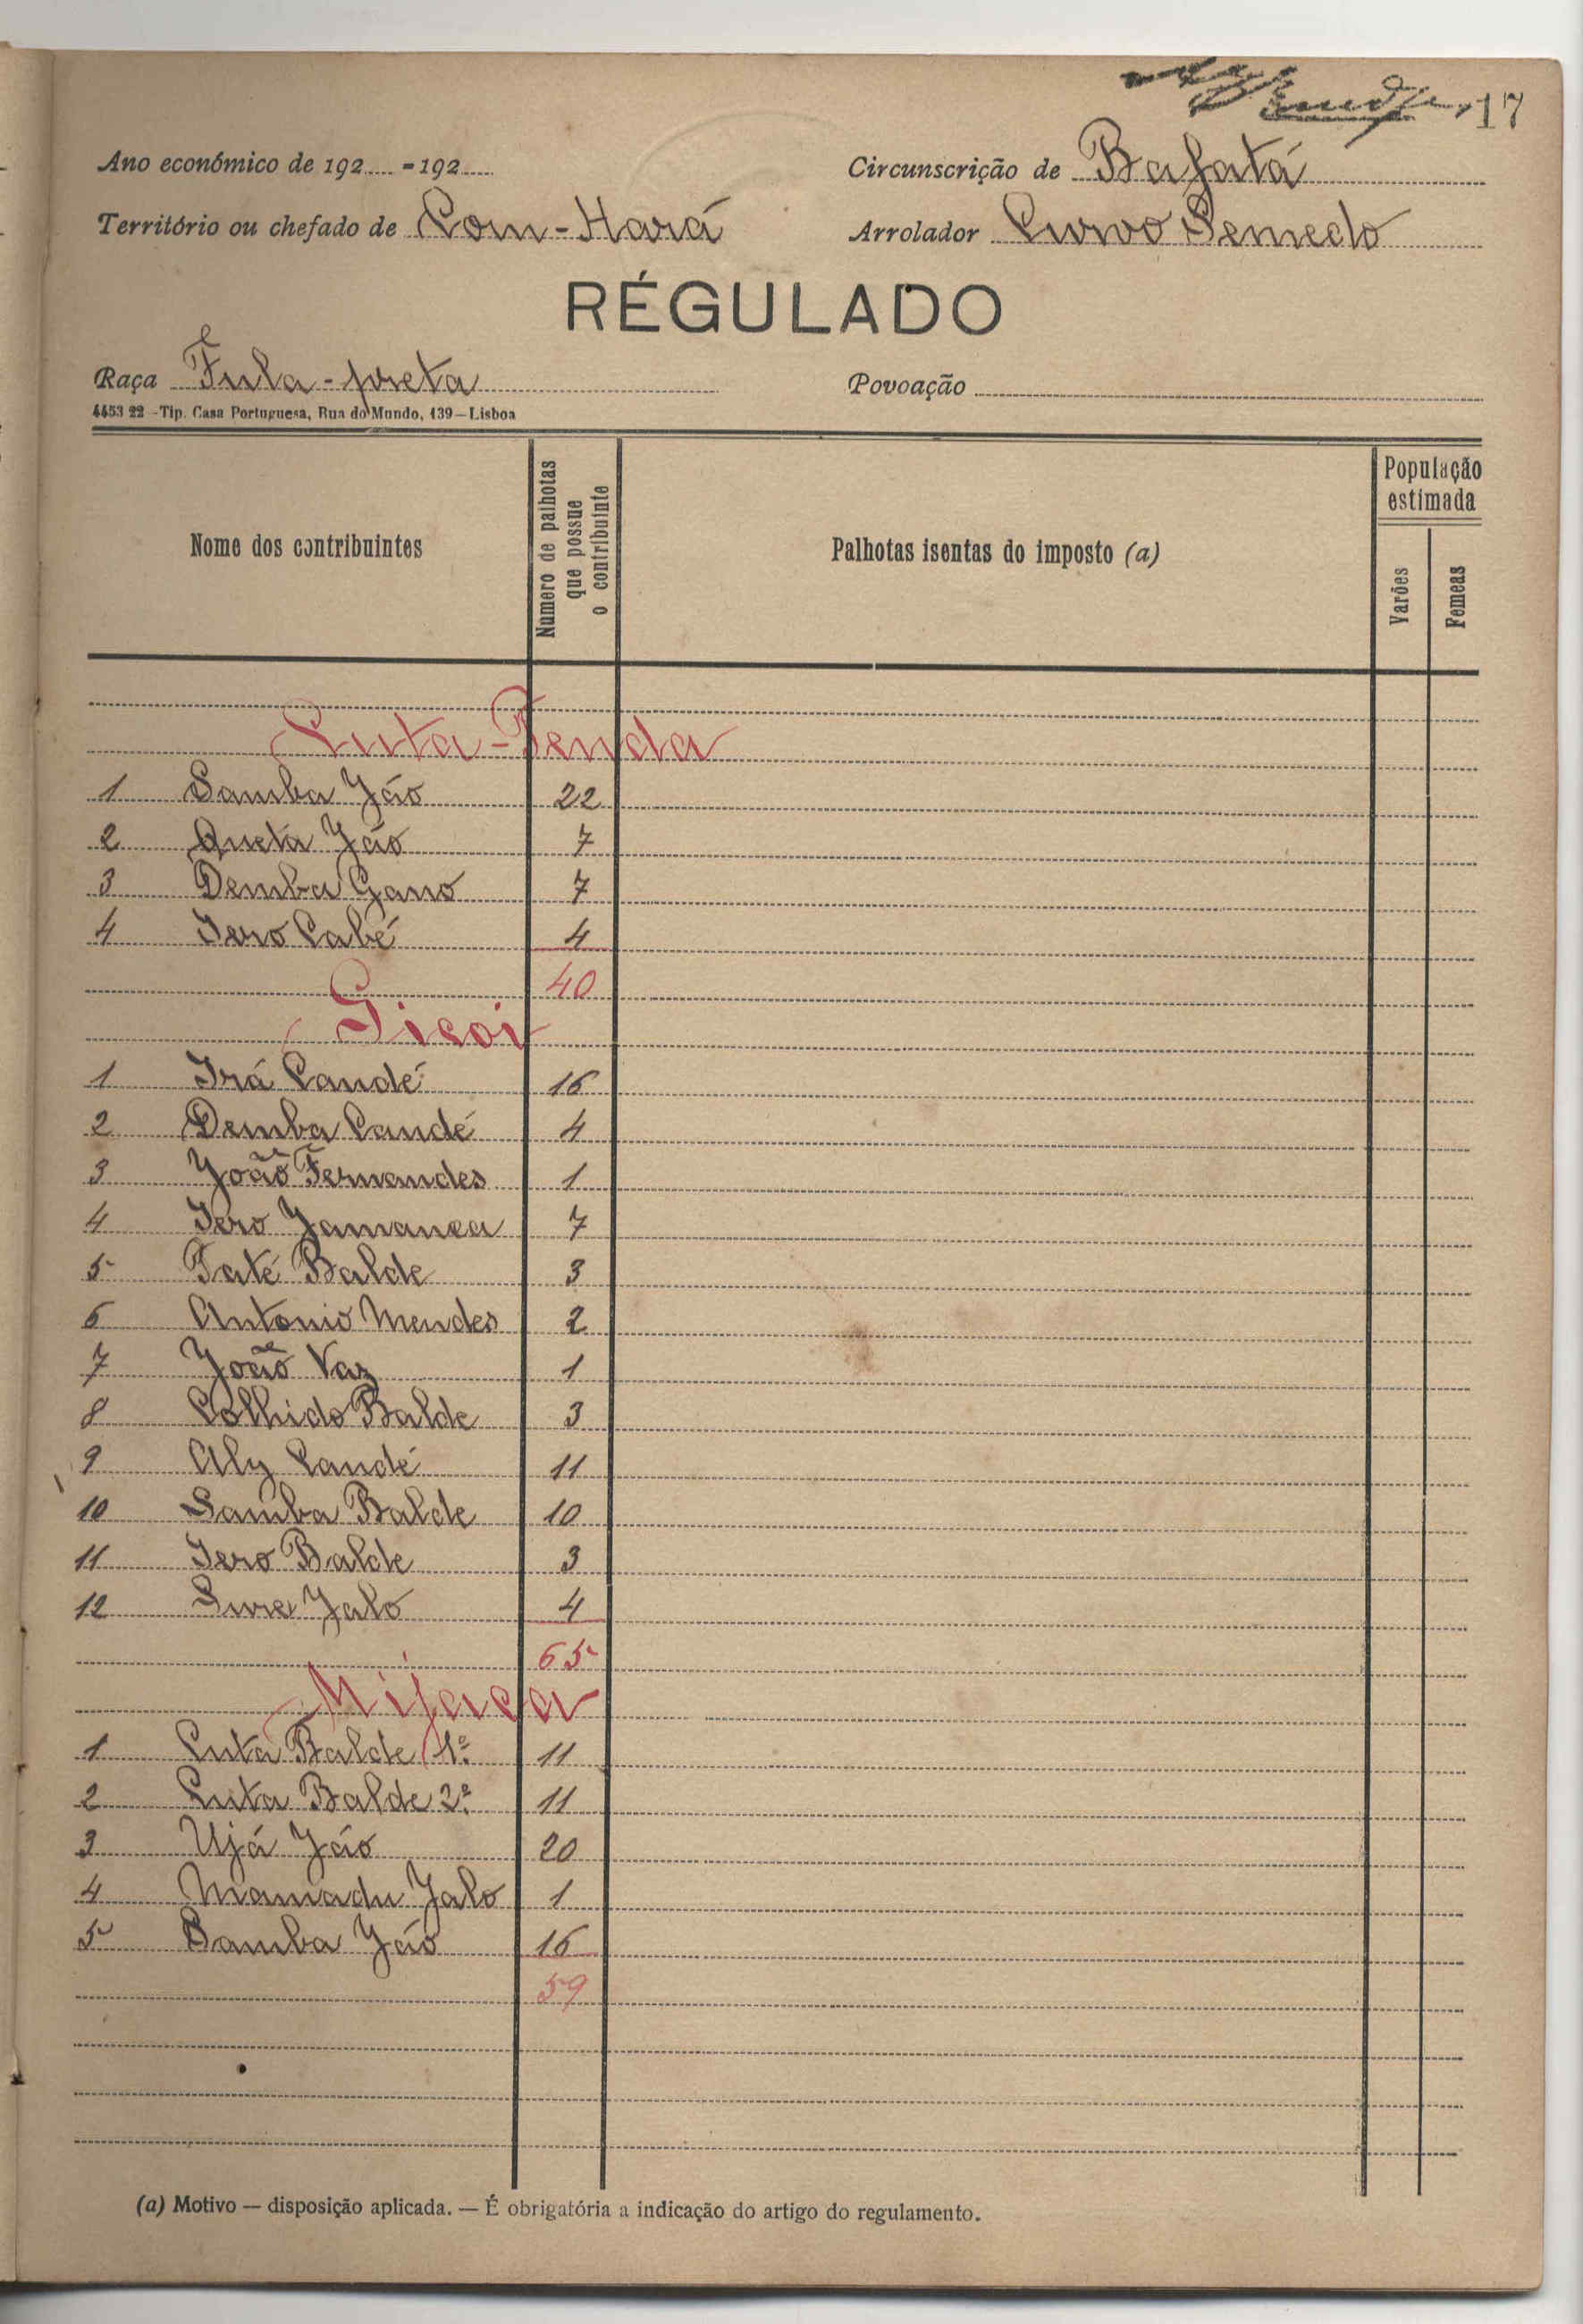 17
Ano económico de 192.... = 192....
Circunscrição de Bafatá
Território ou chefado de Com-Hará
Arrolador Curvo Semedo
RÉGULADO
Raça Fula-preta
Povoação
4453 22 - Tip. Casa Portuguesa, Rua do Mundo, 139 — Lisboa
Nome dos contribuintes
Numero de palhotas que possue o contribuinte
Palhotas isentas do imposto (a)
População estimada
Varões
Femeas
Cuta-Tenda
1 Samba Jáo 22
2 Queta Jáo 7
3 Demba Gano 7
4 Iero Cabé 4
40
Sicoi
1 Irá Candé 16
2 Demba Candé 4
3 João Fernandes 1
4 Iero Jamanca 7
5 Taté Balde 3
6 Antonio Mendes 2
7 João Vaz 1
8 Colhido Balde 3
9 Aly Candé 11
10 Samba Balde 10
11 Iero Balde 3
12 Sure Jaló 4
65
Mijaca
1 Cuta Balde 1º 11
2 Cuta Balde 2º 11
3 Ujá Jáo 20
4 Mamadu Jalo 1
5 Samba Jáo 16
59
(a) Motivo — disposição aplicada. — É obrigatória a indicação do artigo do regulamento.